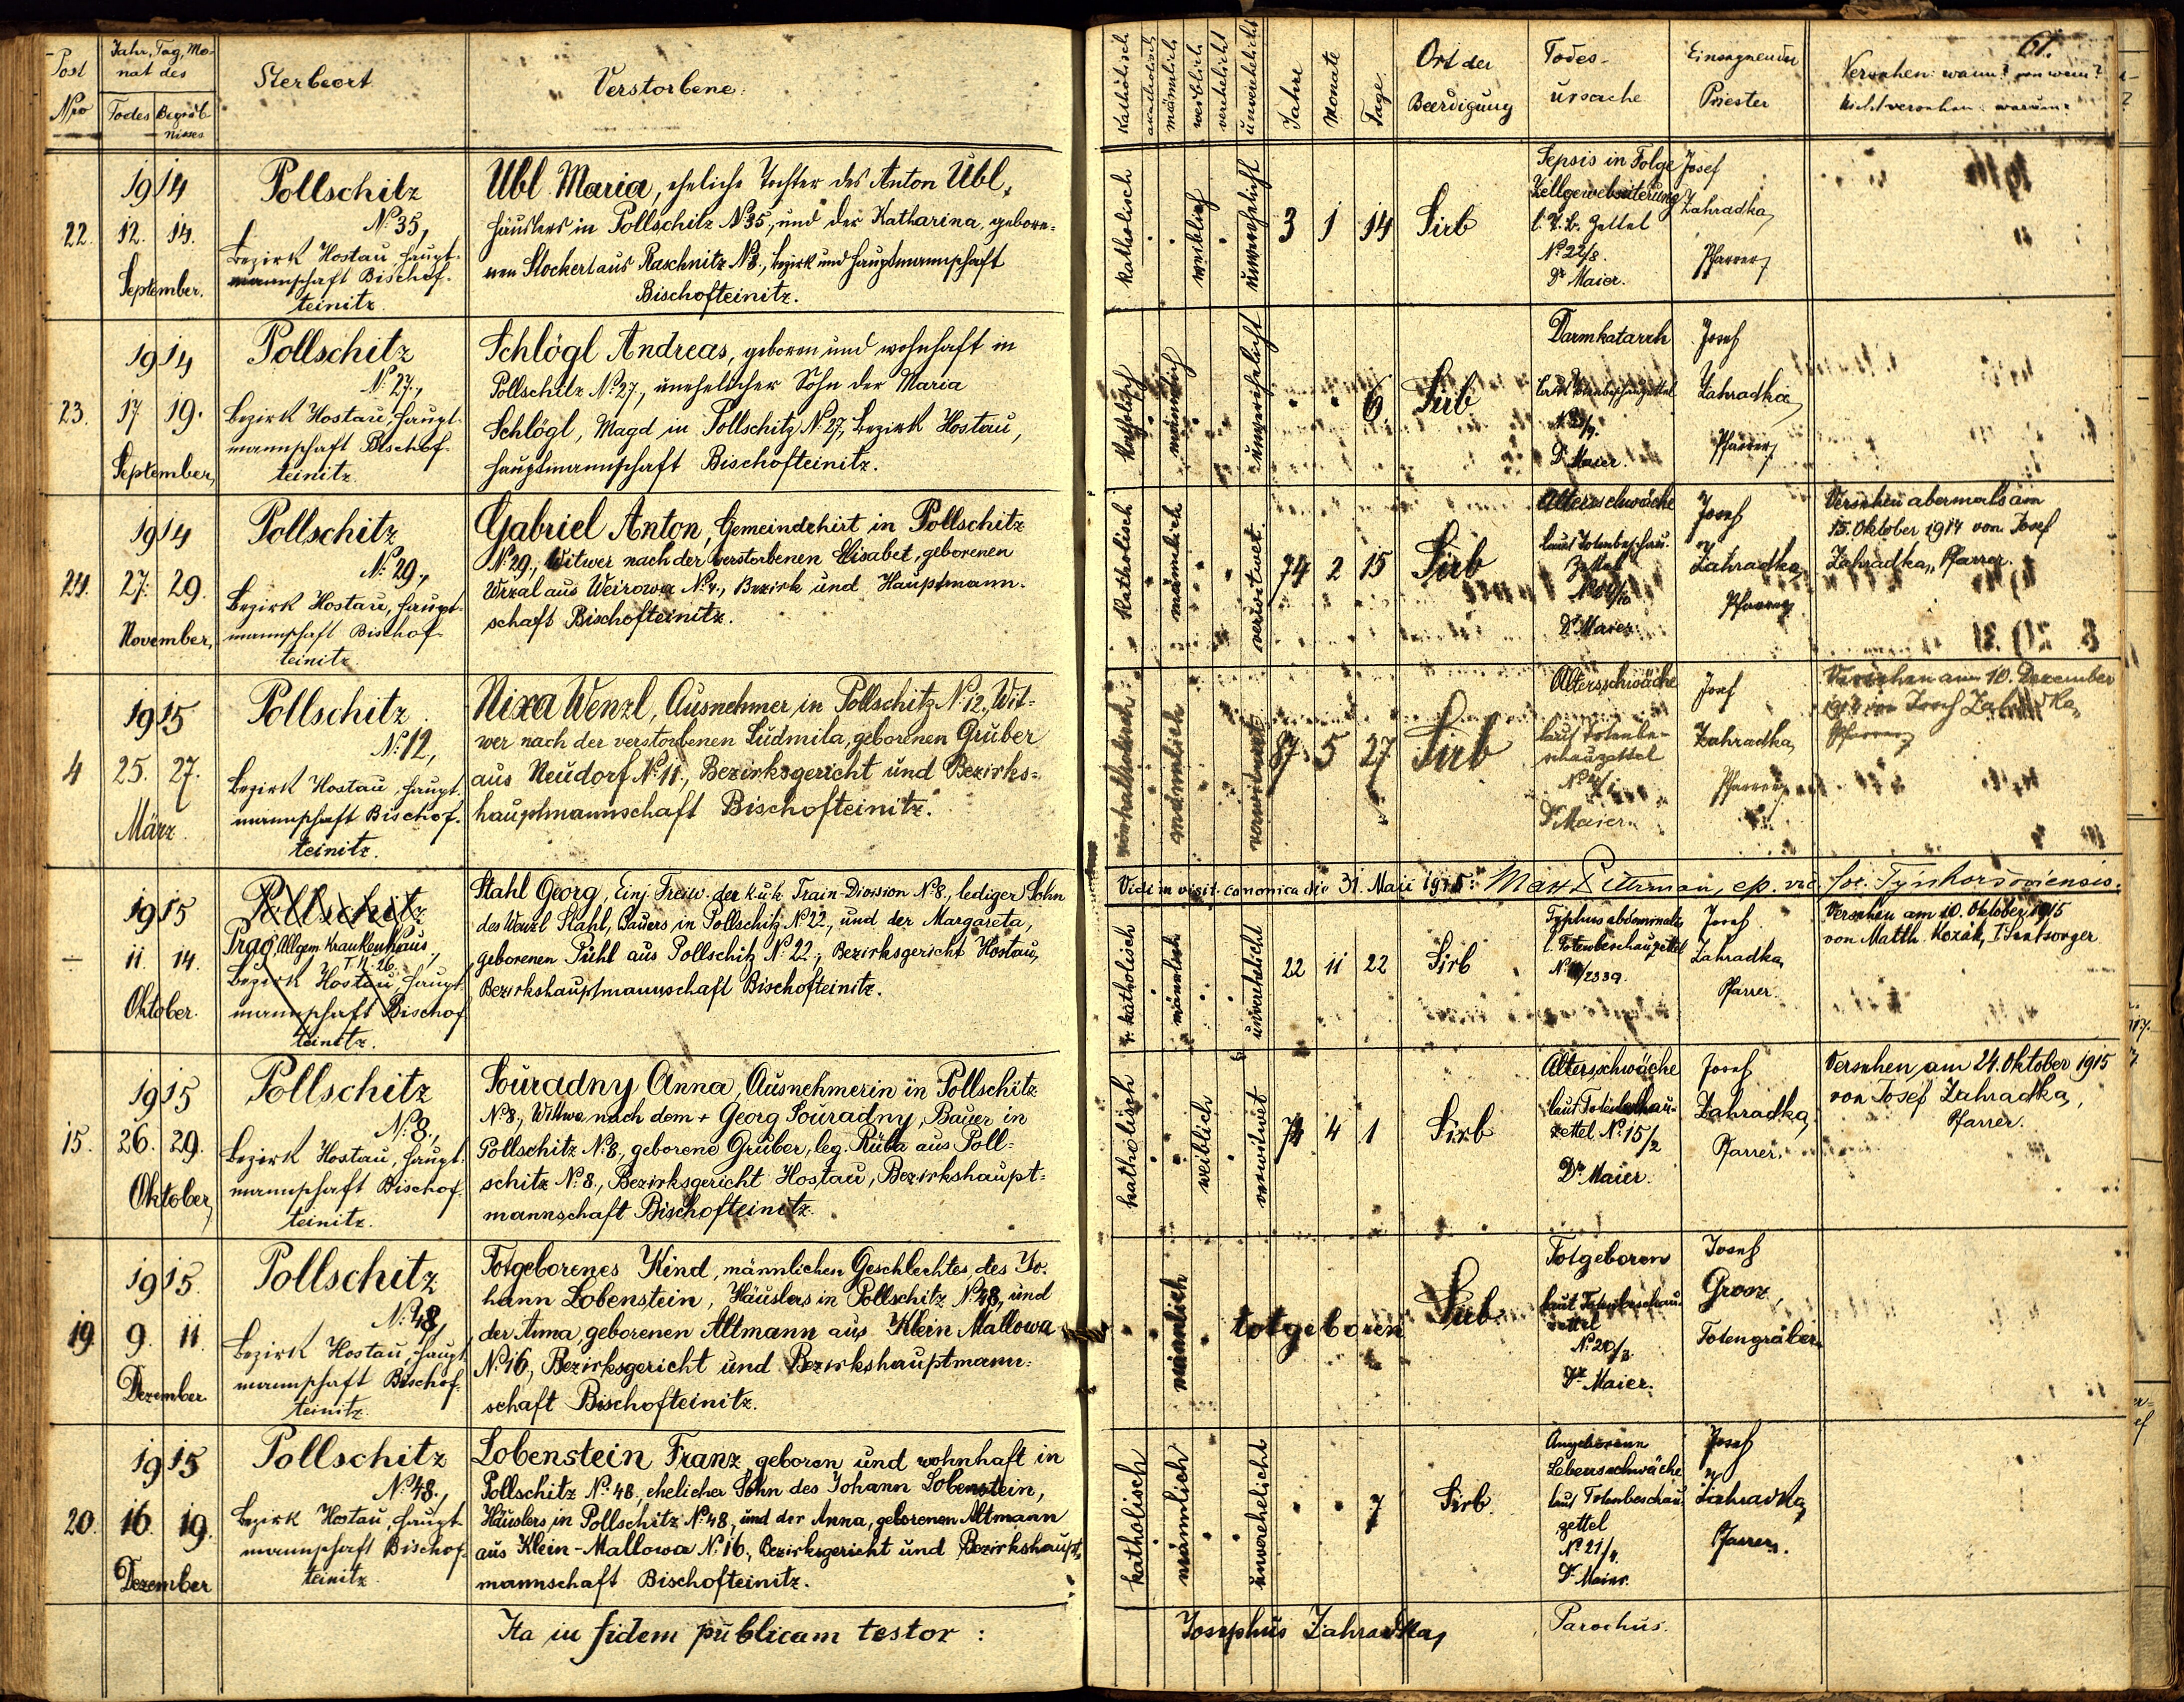 Post
Nro
Jahr, Tag, Mo-
nat des
Todes Begräb-
nisses
Sterbeort
Verstorbene:
katholisch
akatholisch
männlich
weiblich
verehelicht
unverehelicht
Jahre
Monate
Tage
Ort der
Beerdigung
Todes-
ursache
Einsegnender
Priester
61.
Versehen: wann? von wem?
Nicht versehen: warum?
22.
1914
12. 14.
September.
Pollschitz
No 35,
Bezirk Hostau, Haupt-
mannschaft Bischof-
teinitz.
Übl Maria, eheliche Tochter des Anton Übl,
Häuslers in Pollschitz No 35, und der Katharina, gebore-
nen Stockert aus Raschnitz No 3., Bezirk und Hauptmannschaft
Bischofteinitz.
katholisch
weiblich
unverehelicht
3 1 14
Sirb
Sepsis in Folge
Zellgewebseiterung
l. T. b. Zettel
No 22/8.
Dr Maier.
Josef
Zahradka,
Pfarrer
23.
1914
17 19.
September,
Pollschitz
No 27.,
Bezirk Hostau, Haupt-
mannschaft Bischof-
teinitz.
Schlögl Andreas, geboren und wohnhaft in
Pollschitz No 27., unehelicher Sohn der Maria
Schlögl, Magd in Pollschitz No 27., Bezirk Hostau,
Hauptmannschaft Bischofteinitz.
katholisch
männlich
unverehelicht
6
Sirb
Darmkatarrh
laut Totenbeschauzettel
Dr Maier.
Josef
Zahradka
Pfarrer
24.
1914
27. 29.
November,
Pollschitz
No 29.,
Bezirk Hostau, Haupt-
mannschaft Bischof-
teinitz
Gabriel Anton, Gemeindehirt in Pollschitz
No 29., Witwer nach der verstorbenen Elisabet, geborenen
Wrzal aus Weirowa No 4., Bezirk und Hauptmann-
schaft Bischofteinitz.
katholisch
männlich
verwitwet
74 2 15
Sirb
Altersschwäche
laut Totenbeschau-
Zettel
Dr Maier.
Josef
Zahradka,
Pfarrer
Versehen abermals am
15. Oktober 1914 von Josef
Zahradka, Pfarrer.
4
1915
25. 27.
März.
Pollschitz
No 12,
Bezirk Hostau, Haupt-
mannschaft Bischof-
teinitz.
Nixa Wenzl, Ausnehmer in Pollschitz No 12., Wit-
wer nach der verstorbenen Ludmila, geborenen Gruber
aus Neudorf No 11., Bezirksgericht und Bezirks-
hauptmannschaft Bischofteinitz.
männlich
verwitwet
87 5 27
Sirb
Altersschwäche
laut Totenbe-
schauzettel
Dr Maier.
Josef
Zahradka,
Pfarrer
Versehen am 10. Dezember
von Josef Zahradka,
Pfarrer
Vidi in visit. canonica die 31. Maii 1915:
—
1915
11. 14.
Oktober.
Pollschitz
Prag, Allgem. Krankenhaus,
Bezirk Hostau, Haupt-
mannschaft Bischof-
teinitz.
Stahl Georg, Einj. Freiw. der k.u.k Train-Division No 8., lediger Sohn
des Wenzl Stahl, Bauers in Pollschitz No 22., und der Margareta,
geborenen Pühl aus Pollschitz No 22., Bezirksgericht Hostau,
Bezirkshauptmannschaft Bischofteinitz.
r. katholisch
männlich
unverehelicht
22 11 22
Sirb
Typhus abdominalis
l. Totenbeschauzettel
Josef
Zahradka,
Pfarrer.
Versehen am 10. Oktober 1915
von Matth. Kozák,
15.
1915
26. 29.
Oktober,
Pollschitz
No 8.,
Bezirk Hostau, Haupt-
mannschaft Bischof-
teinitz.
Souradny Anna, Ausnehmerin in Pollschitz
No 8., Witwe nach dem + Georg Souradny, Bauer in
Pollschitz No 8., geborene Gruber, leg. Ruba aus Poll-
schitz No 8., Bezirksgericht Hostau, Bezirkshaupt-
mannschaft Bischofteinitz.
katholisch
weiblich
verwitwet
74 4 1
Sirb
Altersschwäche
laut Totenbeschau-
zettel No 15/2
Dr Maier.
Josef
Zahradka,
Pfarrer.
Versehen am 24. Oktober 1915
von Josef Zahradka,
Pfarrer.
19
1915.
9. 11.
Dezember
Pollschitz
No 48,
Bezirk Hostau, Haupt-
mannschaft Bischof-
teinitz.
Totgeborenes Kind, männlichen Geschlechtes, des Jo-
hann Lobenstein, Häuslers in Pollschitz No 48, und
der Anna, geborenen Altmann aus Klein Mallowa
No 16, Bezirksgericht und Bezirkshauptmann-
schaft Bischofteinitz.
männlich
totgeboren
Sirb.
Totgeboren
laut Totenbeschau-
zettel
No 20/3
Dr Maier.
Josef
Grosz,
Totengräber.
20.
1915
16. 19.
Dezember
Pollschitz
No 48.,
Bezirk Hostau, Haupt-
mannschaft Bischof-
teinitz.
Lobenstein Franz, geboren und wohnhaft in
Pollschitz No 48, ehelicher Sohn des Johann Lobenstein,
Häuslers in Pollschitz No 48, und der Anna, geborenen Altmann
aus Klein-Mallowa No 16., Bezirksgericht und Bezirkshaupt-
mannschaft Bischofteinitz.
katholisch
männlich
unverehelicht
7
Sirb.
Angeborene
Lebensschwäche
laut Totenbeschau
zettel
No 21/4.
Dr Maier.
Josef
Zahradka,
Pfarrer.
Ita in fidem publicam testor:
Josephus Zahradka,
Parochus.